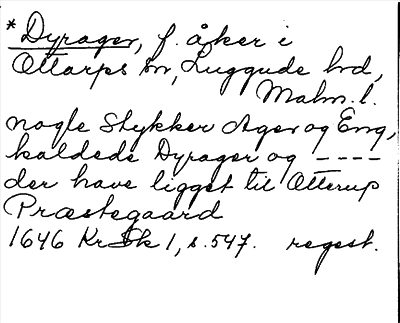 * Dyrager, f. åker i
Ottarps sn, Luggude hd,
Malm. l.
nogle Stykker Ager og Eng,
kaldede Dyrager og ----
der have ligget til Otterup
Præstegaard
1646 KrSk 1, s. 547. regest.